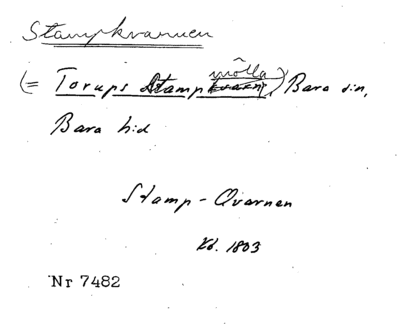 Stampkvarnen
mölla
(= Torups Stampkvarn), Bara sn,
Bara hd
Stamp-Qvarnen
Kb. 1803
Nr 7482